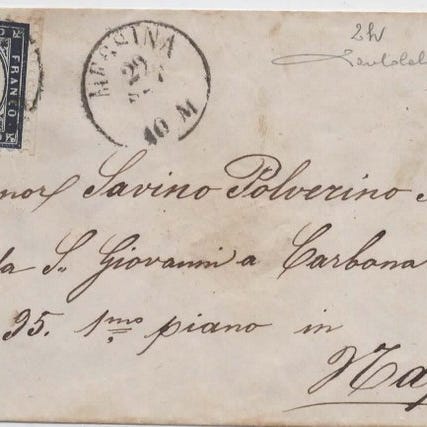 FRANCO
MESSINA
29
10 M
2h
nor Savino Polverino
da S. Giovanni a Carbona
95. 1mo piano in
Nap